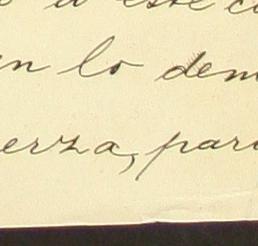 a este c
n lo dem
erza, par